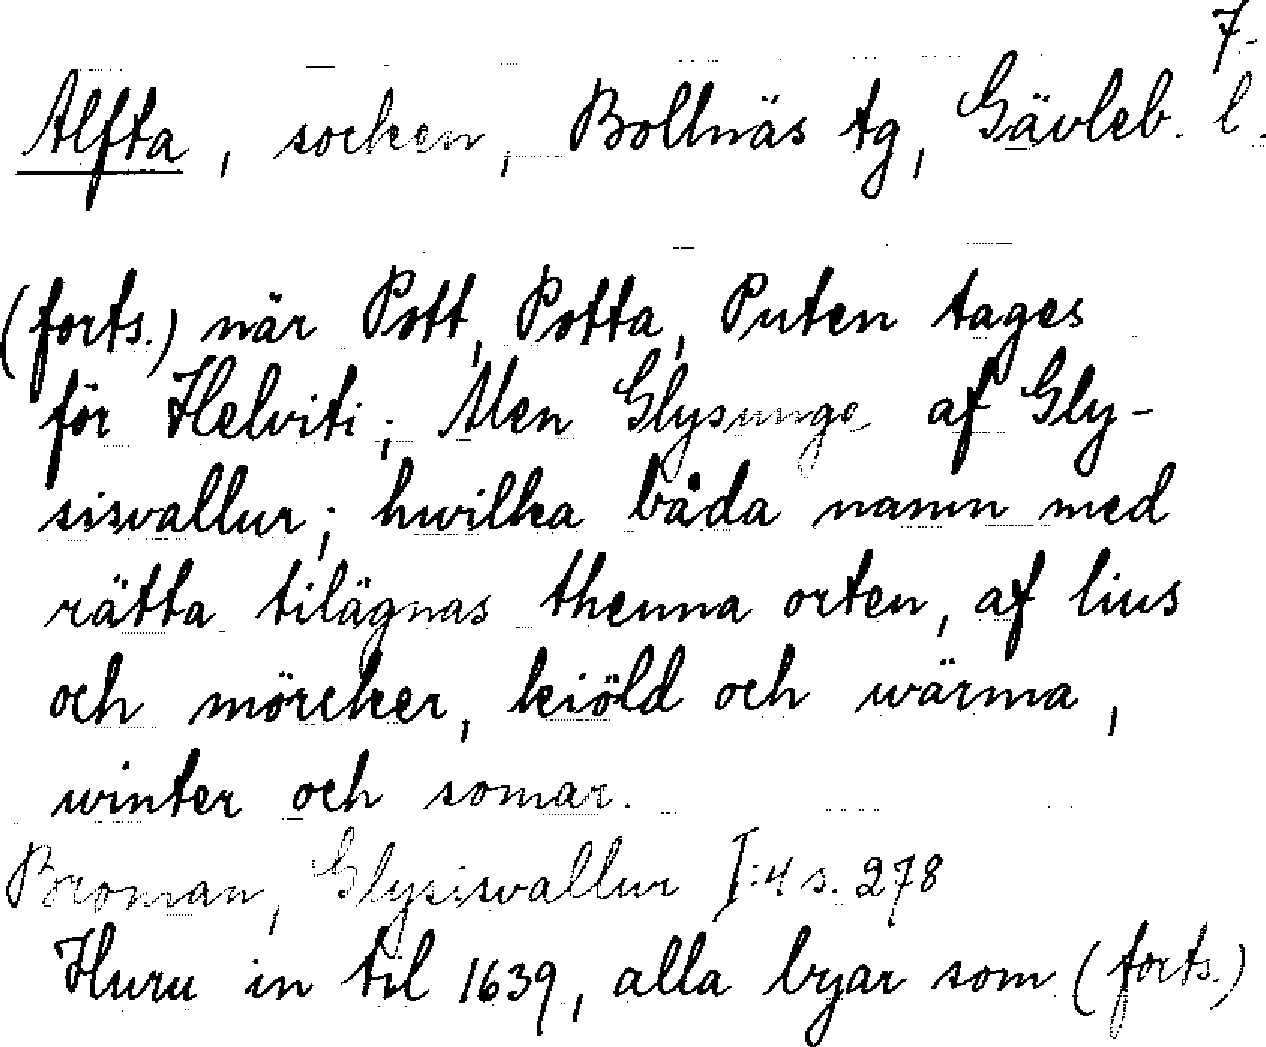 7.
Alfta, socken, Bollnäs tg, Gävleb. l.
(forts.) när Pott, Potta, Puten tages
för Helviti; Men Glysunge af Gly-
sisvallur; hwilka båda namn med
rätta tilägnas thenna orten, af lius
och mörcker, kiöld och wärma,
winter och somar.
Broman, Glysisvallur I:4 s. 278
Huru in til 1639, alla byar som (forts.)